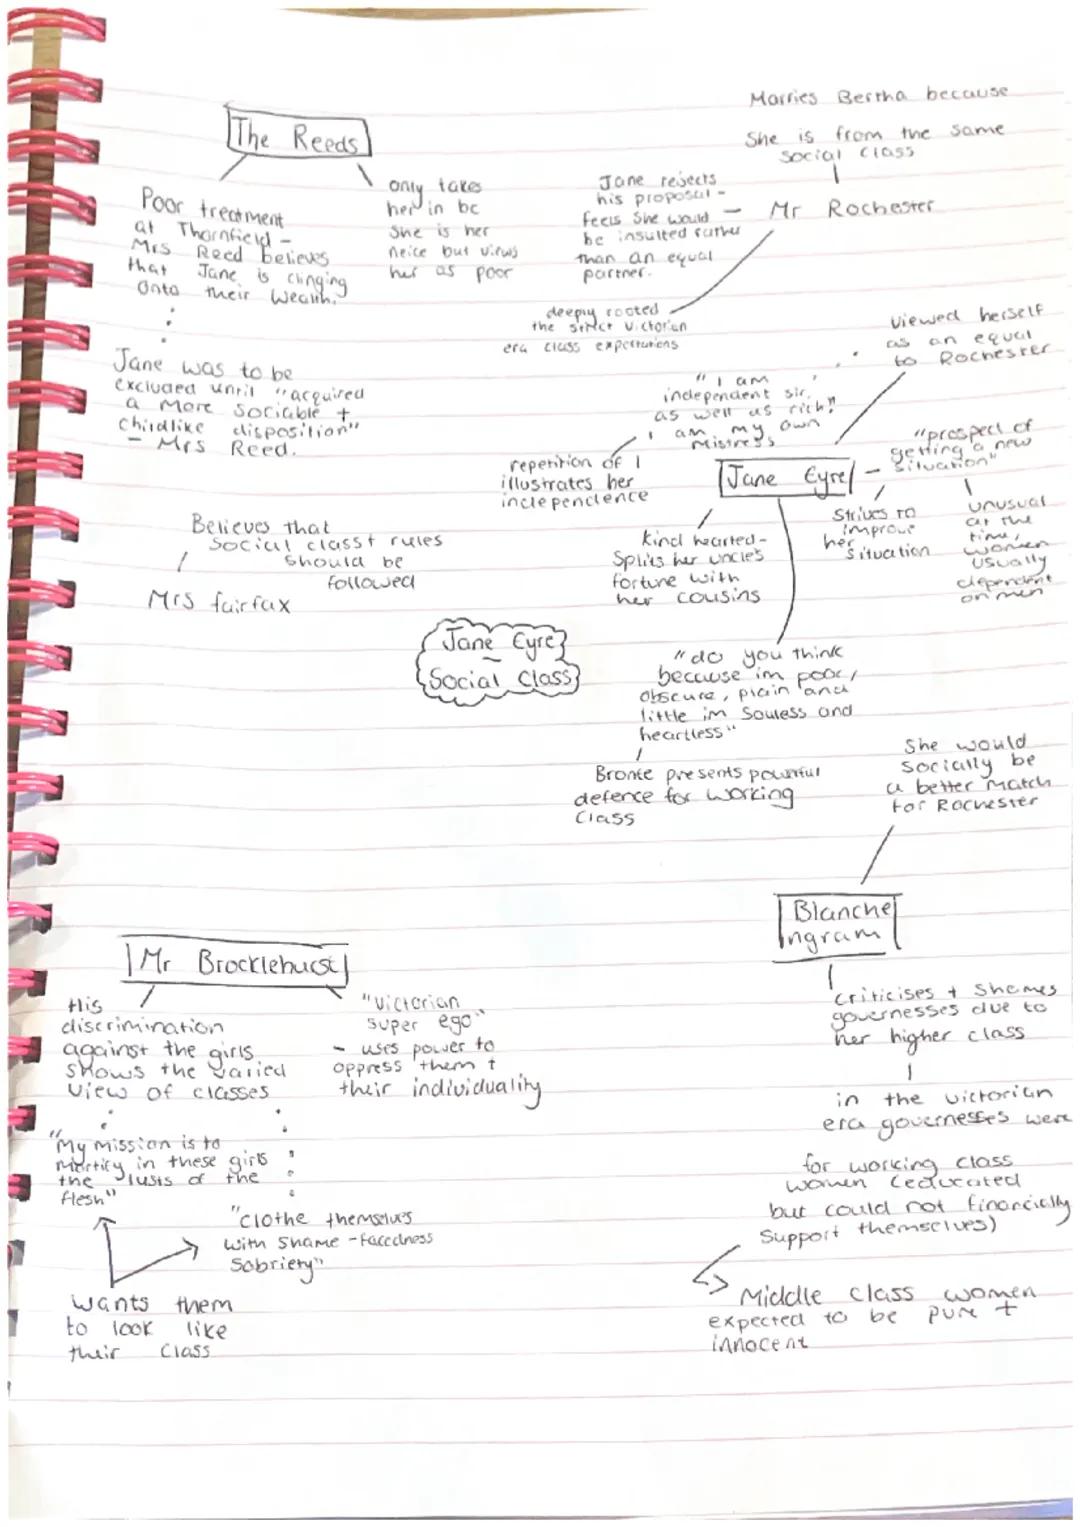 The Reeds
Poor treatment
at Thornfield -
Mrs Reed believes
that Jane is clinging
onto their wealth.
only takes
her in bc
She is her
neice but views
her as poor
Jane was to be
excluded until "acquired
a more sociable +
childlike disposition"
- Mrs Reed.
Marries Bertha because
She is from the same
Social class
Mr Rochester
Jane rejects
his proposal -
feels she would
be insulted rather
than an equal
partner.
deeply rooted
the strict Victorian
era class expectations
Viewed herself
as an equal
to Rochester
"I am
independent sir,
as well as rich!"
I am my own
mistress
repetition of I
illustrates her
independence
Jane Eyre
"prospect of
getting a new
situation"
Strives to
improve
her situation
unusual
at the
time,
women
usually
dependent
on men
kind hearted -
Splits her uncle's
fortune with
her cousins
Believes that
Social class + rules
should be
followed
Mrs fairfax
Jane Eyre
-
Social Class
"do you think
because im poor,
obscure, plain and
little im Souless and
heartless"
Bronte presents powerful
defence for working
Class
She would
socially be
a better match
for Rochester
Blanche
Ingram
criticises + shames
governesses due to
her higher class
in the victorian
era governesses were
for working class
women (educated
but could not financially
Support themselves)
Middle class women
expected to be pure +
innocent
Mr Brocklehurst
His
discrimination
against the girls
shows the varied
view of classes
"Victorian
super ego"
- uses power to
oppress them +
their individuality
"My mission is to
mortify in these girls
the lusts of the
flesh"
"Clothe themselves
with shame-facedness
Sobriety"
wants them
to look like
their class